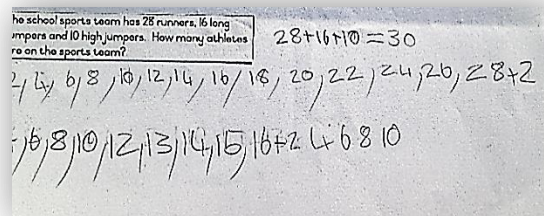 he school sports team has 28 runners, 16 long
umpers and 10 high jumpers. How many athletes
re on the sports team?
28+16+10=30
2, 4, 6, 8, 10, 12, 14, 16, 18, 20, 22, 24, 26, 28+2
, 6, 8, 10, 12, 13, 14, 15, 16+2 4 6 8 10